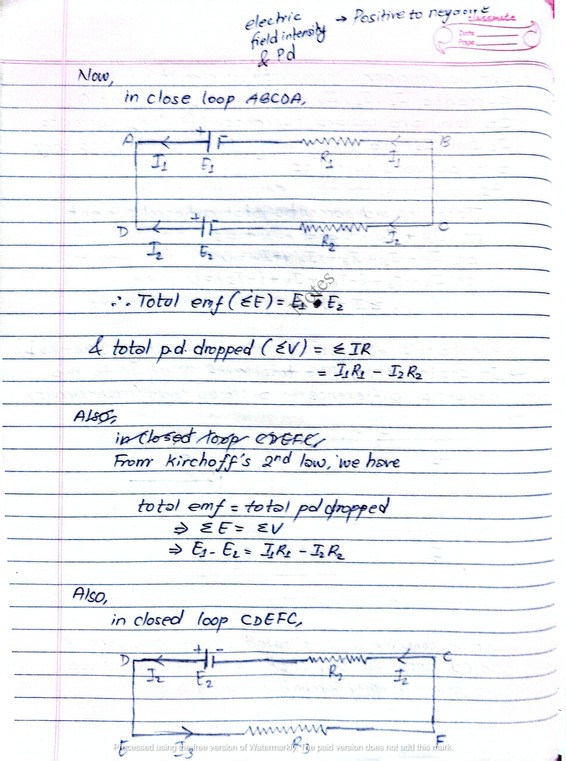 electric → Positive to negative
field intensity
& Pd
classmate
Date
Page
Now,
in close loop ABCDA,
A + - B
I1 E1 R1 I1
D + - C
I2 E2 R2 I2
∴ Total emf (ΣE) = E1 - E2
Notes
& total p.d. dropped (ΣV) = Σ IR
= I1R1 - I2R2
Also,
in closed loop CDEFC,
From kirchoff's 2nd law, we have
total emf = total pd dropped
⇒ ΣE = ΣV
⇒ E1 - E2 = I1R1 - I2R2
Also,
in closed loop CDEFC,
D + - C
I2 E2 R2 I2
E I3 R3 F
Processed using the free version of Watermarkly. The paid version does not add this mark.